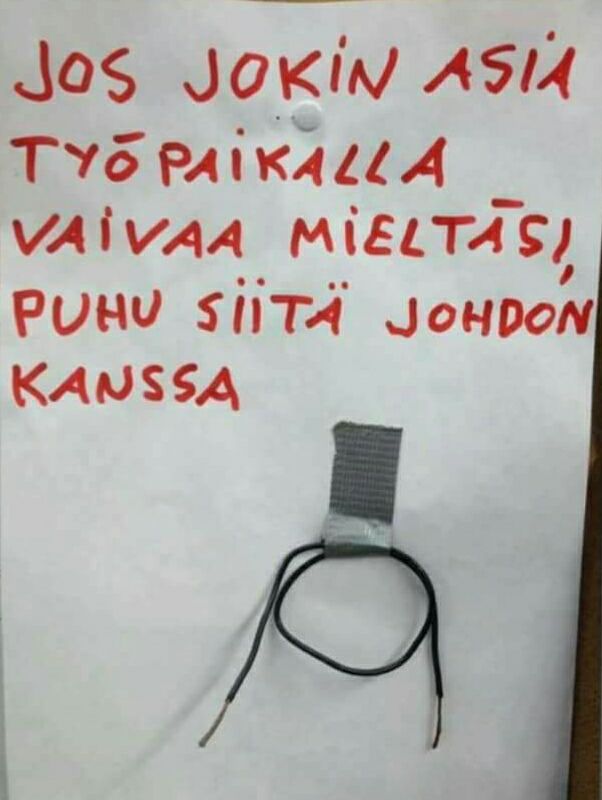 JOS JOKIN ASIA
TYÖPAIKALLA
VAIVAA MIELTÄSI,
PUHU SIITÄ JOHDON
KANSSA